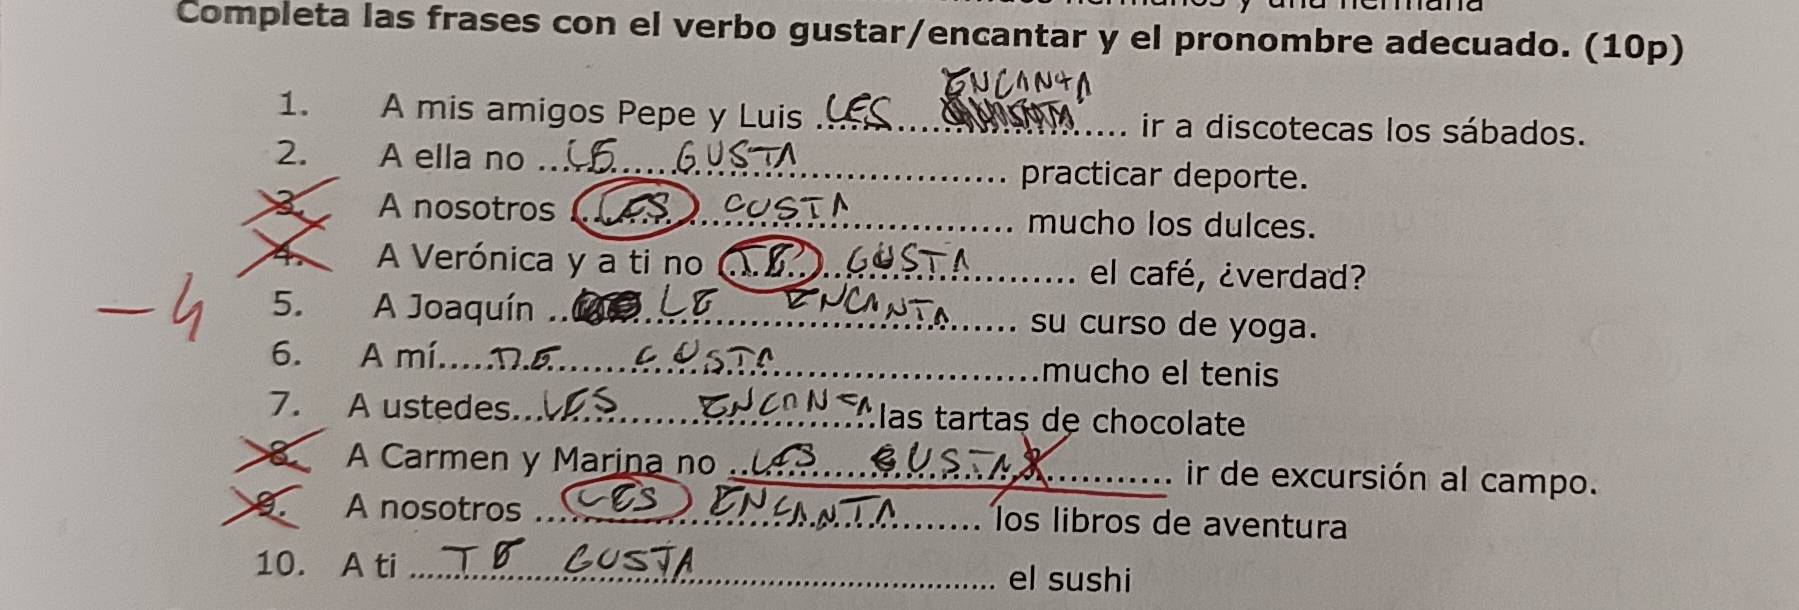 Completa las frases con el verbo gustar/encantar y el pronombre adecuado. (10p)
ENCANTA
1. A mis amigos Pepe y Luis LES ir a discotecas los sábados.
2. A ella no LE GUSTA practicar deporte.
3. A nosotros LES GUSTA mucho los dulces.
4. A Verónica y a ti no TE GUSTA el café, ¿verdad?
-4
5. A Joaquín LE ENCANTA su curso de yoga.
6. A mí ME GUSTA mucho el tenis
7. A ustedes LES ENCANTA las tartas de chocolate
8. A Carmen y Marina no LES GUSTA ir de excursión al campo.
9. A nosotros LES ENCANTA los libros de aventura
10. A ti TE GUSTA el sushi